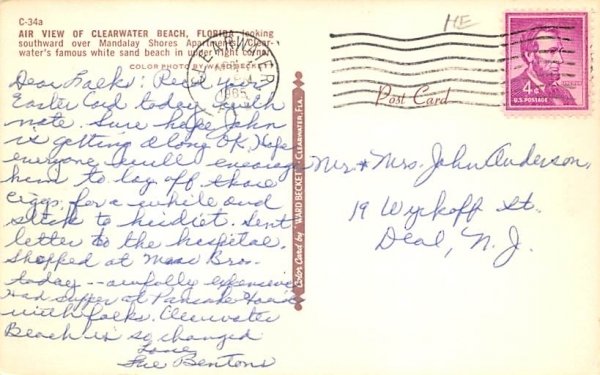 C-34a
AIR VIEW OF CLEARWATER BEACH, FLORIDA looking
southward over Mandalay Shores Apartments. Clear-
water's famous white sand beach in upper right corner.
COLOR PHOTO BY WARD BECKETT
Dear Folks: Rec'd your
Easter card today with
note. Sure hope John
is getting along OK. Hope
everyone will
him to lay off those
ciggs. for a while and
stick to his diet. Sent
letter to the hospital.
Shopped at Maas Bro.
today -- awfully expensive
Had supper at Pancake House
with folks. Clearwater
Beach is so changed
Love
The Bentons
Color Card by "WARD BECKETT" CLEARWATER, FLA.
CLEARWATER
1965
HE
Post Card
4¢
U.S. POSTAGE
Mr & Mrs. John Anderson,
19 Wyckoff St.
Deal, N. J.